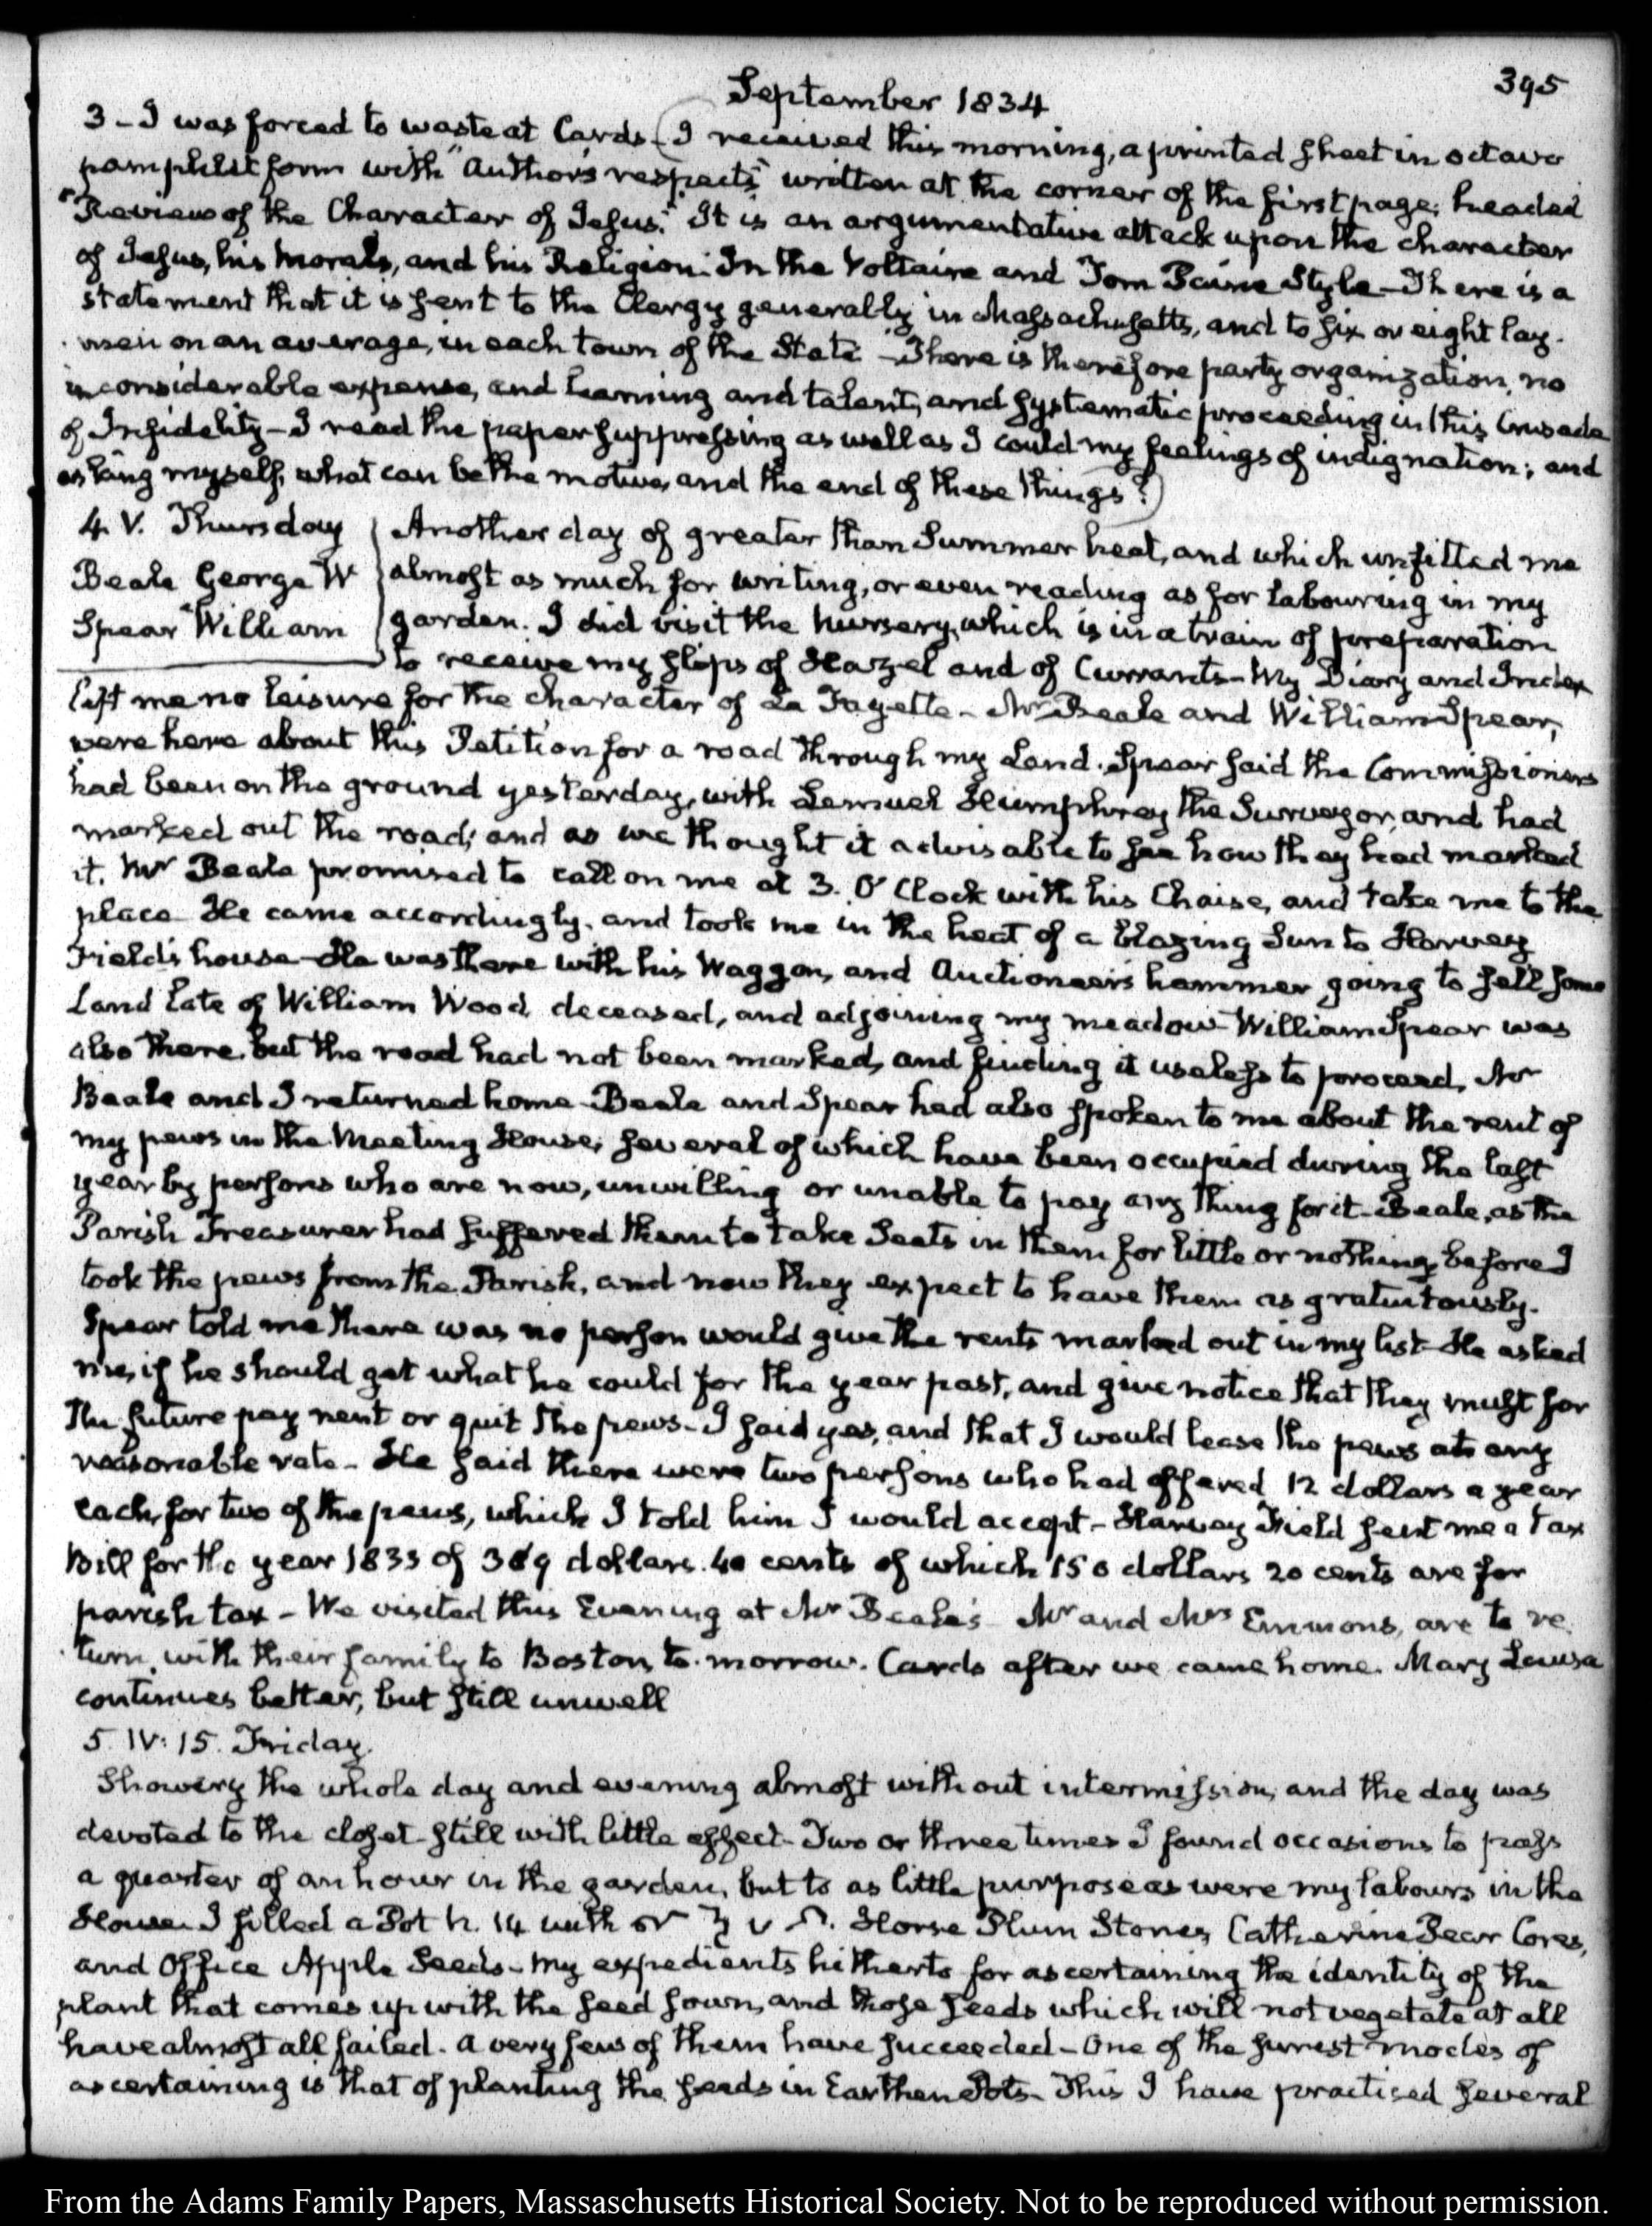 395
September 1834
3 – I was forced to waste at Cards – (I received this morning, a printed sheet in octavo
pamphlet form with "Author's respects" written at the corner of the first page; headed
"Review of the Character of Jesus." It is an argumentative attack upon the character
of Jesus, his morals, and his Religion. In the Voltaire and Tom Paine Style – There is a
statement that it is sent to the Clergy generally in Massachusetts, and to six or eight lay-
men on an average, in each town of the State – There is therefore party organization, no
inconsiderable expense, and learning and talent, and systematic proceeding in this Crusade
of Infidelity – I read the paper suppressing as well as I could my feelings of indignation; and
asking myself, what can be the motive, and the end of these things?)
4. V. Thursday
Beale George W
Spear William
Another day of greater than Summer heat, and which unfitted me
almost as much for writing, or even reading as for labouring in my
garden. I did visit the Nursery, which is in a train of preparation
to receive my slips of Hazel and of Currants – My Diary and Index
left me no leisure for the character of La Fayette – Mr Beale and William Spear,
were here about this Petition for a road through my Land. Spear said the Commissioners
had been on the ground yesterday, with Lemuel Humphrey the Surveyor, and had
marked out the road; and as we thought it advisable to see how they had marked
it. Mr Beale promised to call on me at 3. O'Clock with his Chaise, and take me to the
place – He came accordingly, and took me in the heat of a blazing Sun to Harvey
Field's house – He was there with his Waggon, and Auctioneer's hammer going to sell some
Land late of William Wood deceased, and adjoining my meadow – William Spear was
also there, but the road had not been marked, and finding it useless to proceed, Mr
Beale and I returned home – Beale and Spear had also spoken to me about the rent of
my pews in the Meeting House; several of which have been occupied during the last
year by persons who are now, unwilling or unable to pay any thing for it – Beale, as the
Parish Treasurer had suffered them to take Seats in them for little or nothing before I
took the pews from the Parish, and now they expect to have them as gratuitously.
Spear told me there was no person would give the rents marked out in my list – He asked
me, if he should get what he could for the year past, and give notice that they must for
the future pay rent or quit the pews – I said yes, and that I would lease the pews at any
reasonable rate – He said there were two persons who had offered 12 dollars a year
each, for two of the pews, which I told him I would accept – Harvey Field sent me a tax
Bill for the year 1833 of 369 dollars. 40 cents of which 150 dollars 20 cents are for
parish tax – We visited this Evening at Mr Beale's – Mr and Mrs Emmons, are to re-
turn with their family to Boston, to-morrow. Cards after we came home. Mary Louisa
continues better, but still unwell
5. IV: 15. Friday.
Showery the whole day and evening almost without intermission, and the day was
devoted to the closet – still with little effect – Two or three times I found occasions to pass
a quarter of an hour in the garden, but to as little purpose as were my labours in the
House. I filled a Pot n. 14 with Horse Plum Stones, Catherine Pear Cores,
and Office Apple Seeds – My expedients hitherto for ascertaining the identity of the
plant that comes up with the seed sown, and those seeds which will not vegetate at all
have almost all failed. A very few of them have succeeded – One of the surest modes of
ascertaining is that of planting the seeds in Earthen Pots – This I have practised several
From the Adams Family Papers, Massachusetts Historical Society. Not to be reproduced without permission.